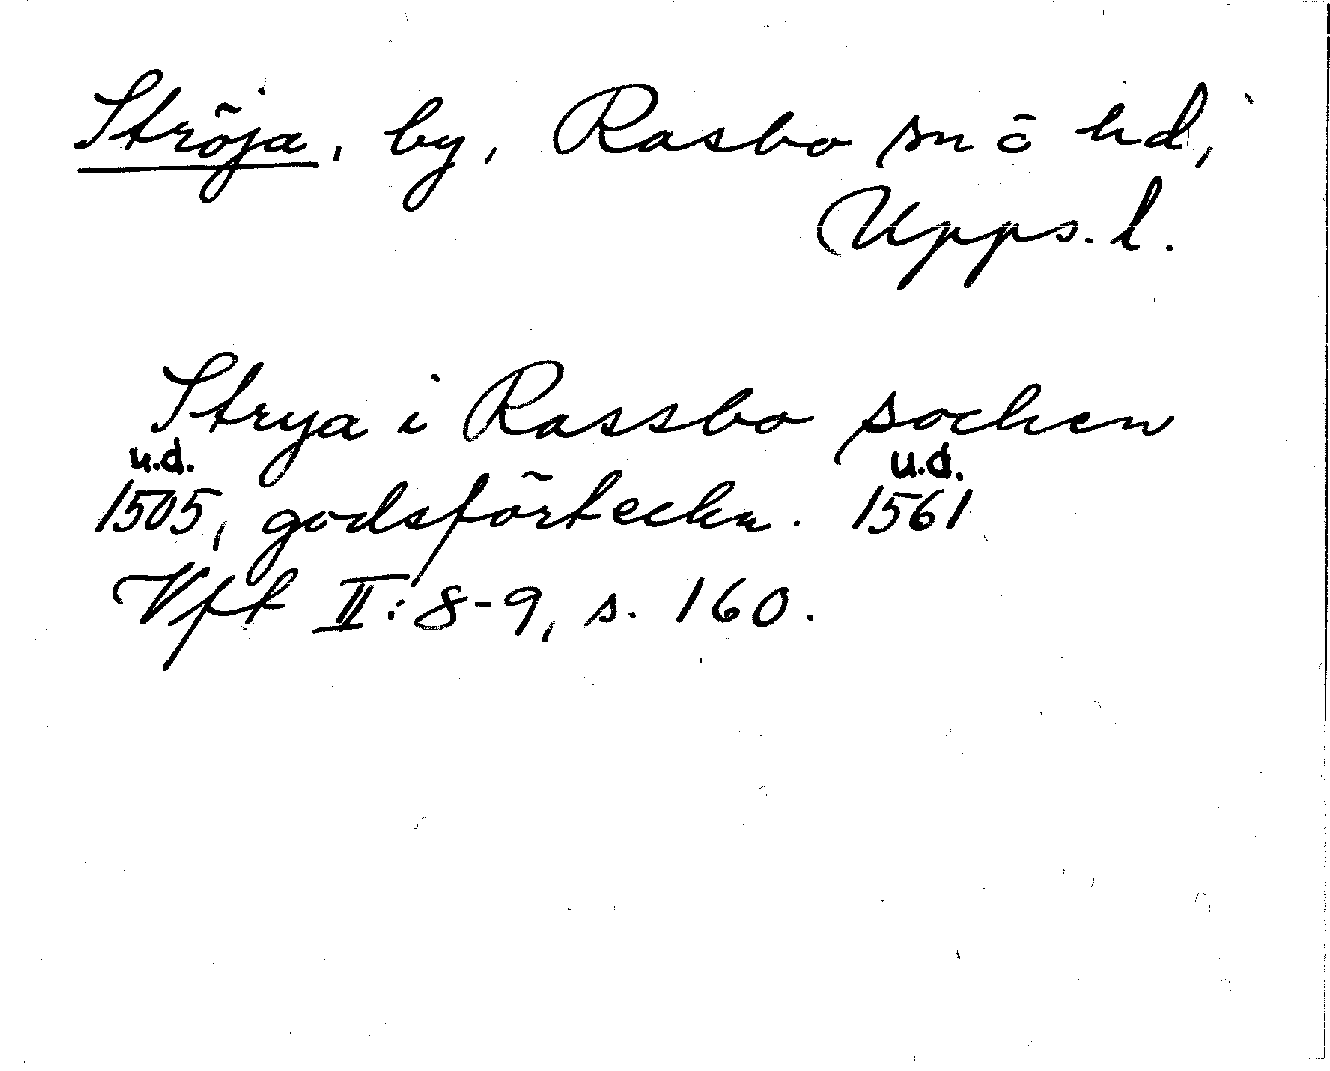 Ströja, by, Rasbo sn o hd,
Upps. l.
Strya i Rassbo socken
u.d. u.d.
1505, godsförteckn. 1561
Vft II:8-9, s. 160.